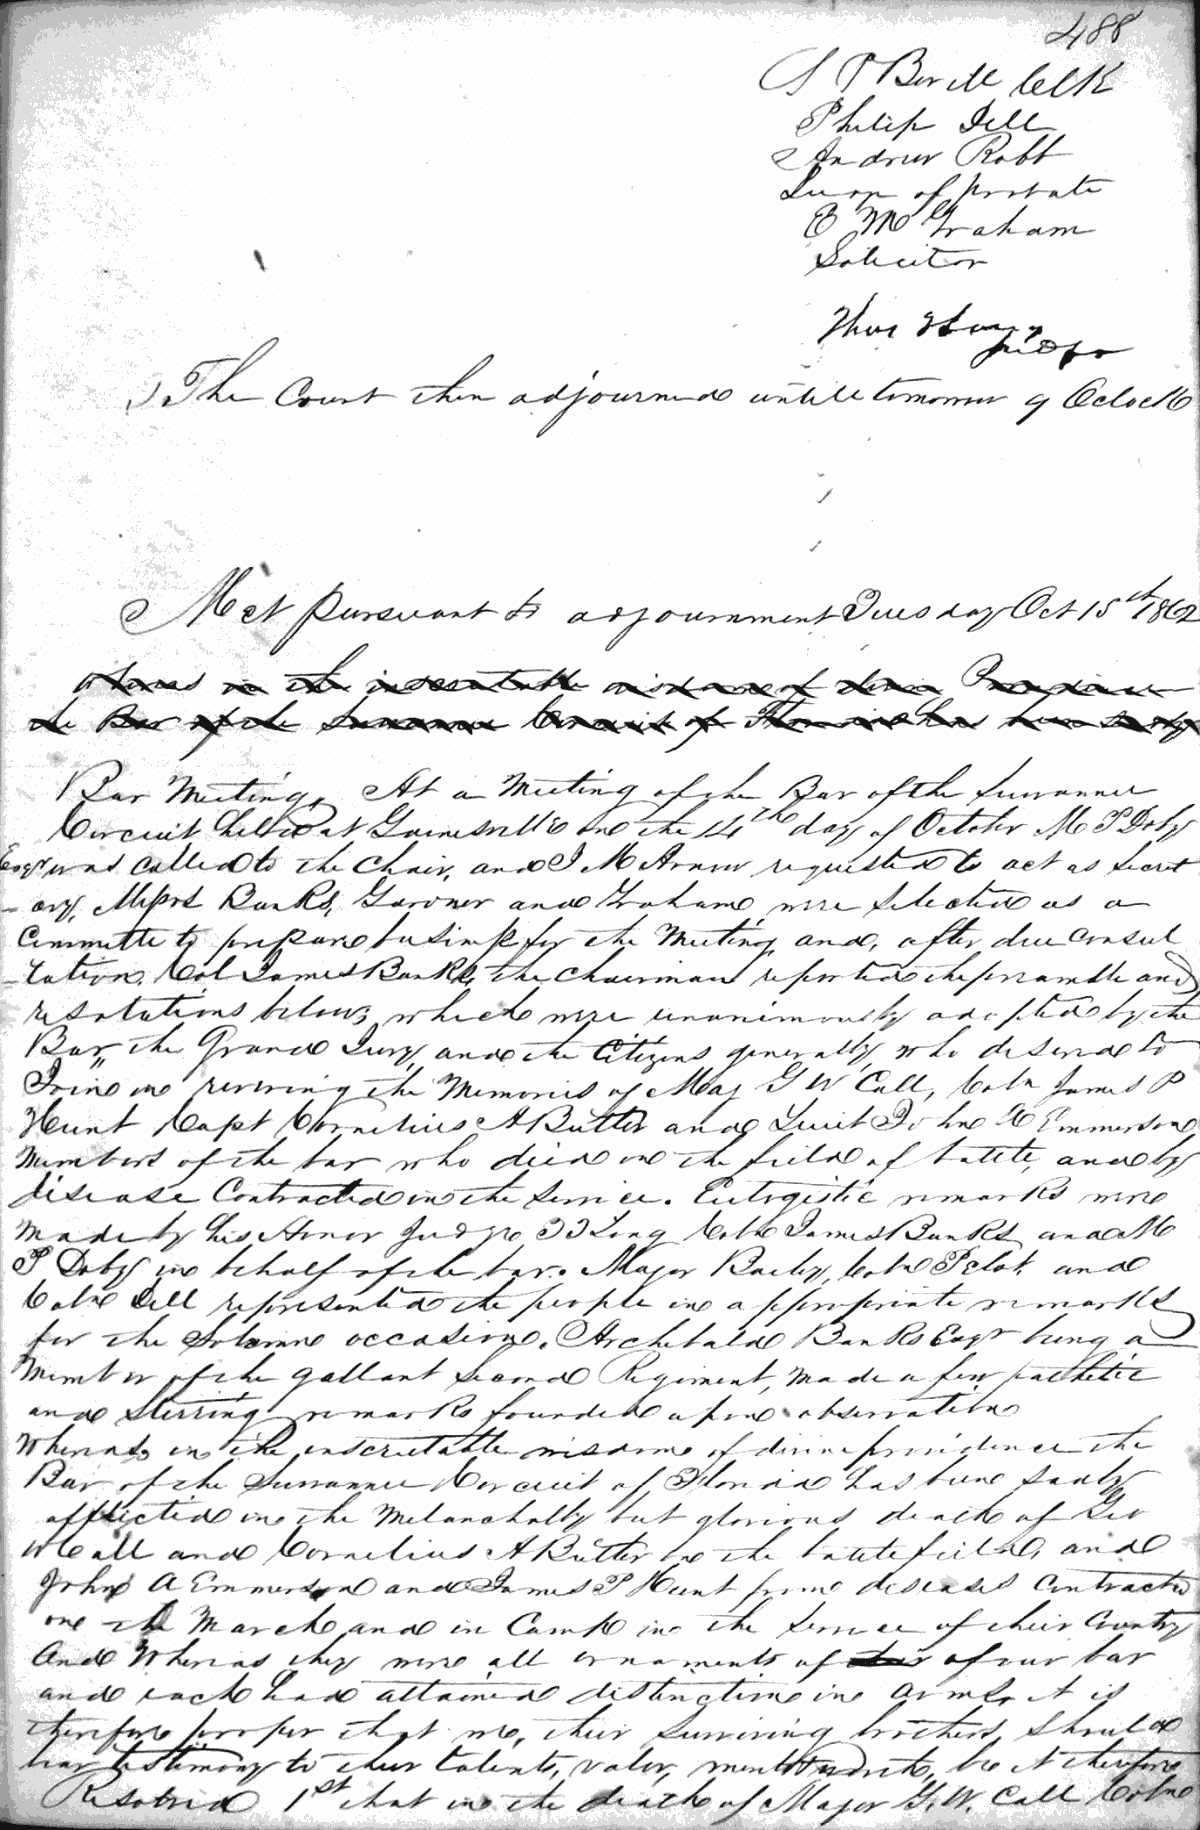 488
S P Bevill Clk
Philip Dell
Andrew Robb
of probate
E M Graham
Solicitor
Thos
Judge
The Court then adjourned untill tomorrow 9 Oclock
Met pursuant to adjournment Tuesday Oct 15th 1862
whereas in the inscrutable wisdom of divine Providence
the Bar of the Suwannee Circuit of Florida has been sadly
Bar Meeting, At a Meeting of the Bar of the Suwannee
Circuit held at Gainesville on the 14th day of October M P Doby
Esqr was called to the Chair, and J M Arnow requested to act as Secret
-ary, Messrs Banks, Gardner and Graham were selected as a
Committe to prepare business for the Meeting, and, after due Consul
-tation, Col James Banks, the Chairman reported the preamble and
resolutions below, which were unanimously adopted by the
Bar, the Grand Jury, and the Citizens generally, who desired to
Join in revering the Memories of Maj G W Call, Coln James P
Hunt Capt Cornelius A Butler and Lieut John A Emmerson
Members of the bar who died on the field of battle, and by
disease Contracted in the Service. Eulogistic remarks were
made by his Honor Judge T T Long Coln James Banks, and M
P Doby in behalf of the bar. Major Bailey, Coln Pelot, and
Coln Dell represented the people in appropriate remarks
for the Solemn occasion. Archibald Banks Esqr being a
Member of the gallant Second Regiment, made a few pathetic
and stirring remarks founded upon observation
Whereas, in the inscrutable wisdom, of divine providence the
Bar of the Suwannee Circuit of Florida has been sadly
afflicted in the Melancholly but glorious death of Geo
W Call and Cornelius A Butler on the battlefield, and
John A Emmerson and James P Hunt from diseases Contracted
on the March and in Camp in the Service of their Country
And Whereas they were all ornaments of of our bar
and each had attained distinction in arms, it is
therefore proper that we, their surviving brothers, should
bear testimony to their talents, valor, be it therefore
Resolved 1st that in the death of Major G. W. Call Coln